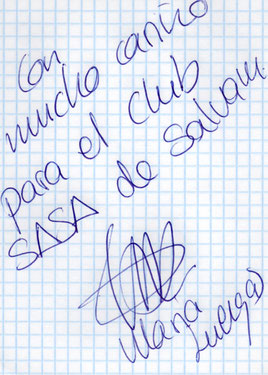 Con
mucho cariño
para el club
SASA de Salvam.
Maria